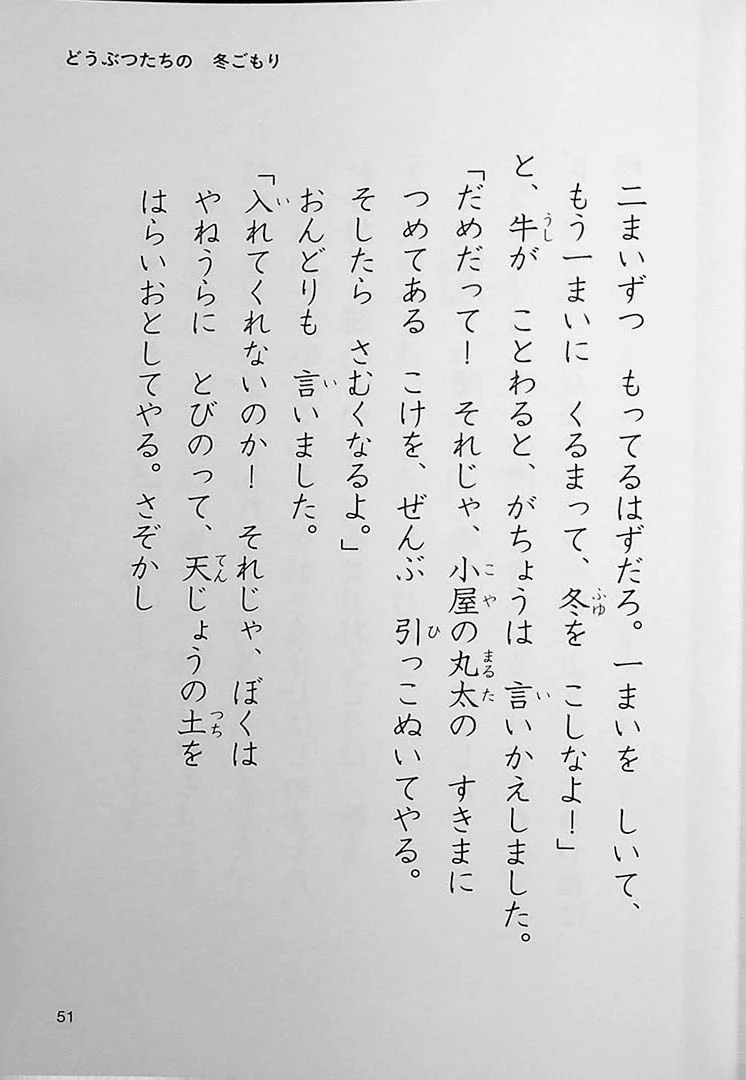 どうぶつたちの　冬ごもり
二まいずつ　もってるはずだろ。一まいを　しいて、
もう一まいに　くるまって、冬を　こしなよ！」
と、牛が　ことわると、がちょうは　言いかえしました。
「だめだって！　それじゃ、小屋の丸太の　すきまに
つめてある　こけを、ぜんぶ　引っこぬいてやる。
そしたら　さむくなるよ。」
おんどりも　言いました。
「入れてくれないのか！　それじゃ、ぼくは
やねうらに　とびのって、天じょうの土を
はらいおとしてやる。さぞかし
51